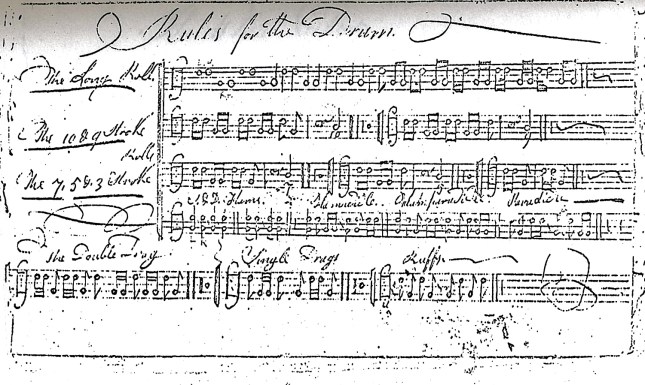 Rules for the Drum
The Long Roll
The 10 & 9 Stroke
Rolls
The 7, 5 & 3 Stroke
Flams.
The Double Drag
Single Drags
Ruffs